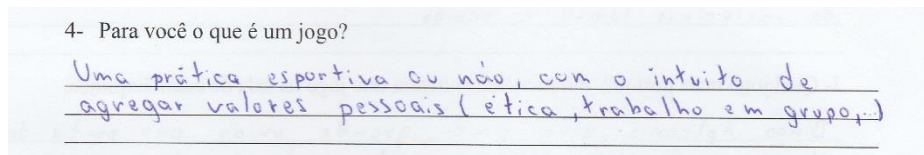 4- Para você o que é um jogo?
Uma prática esportiva ou não, com o intuito de
agregar valores pessoais (ética, trabalho em grupo,...)